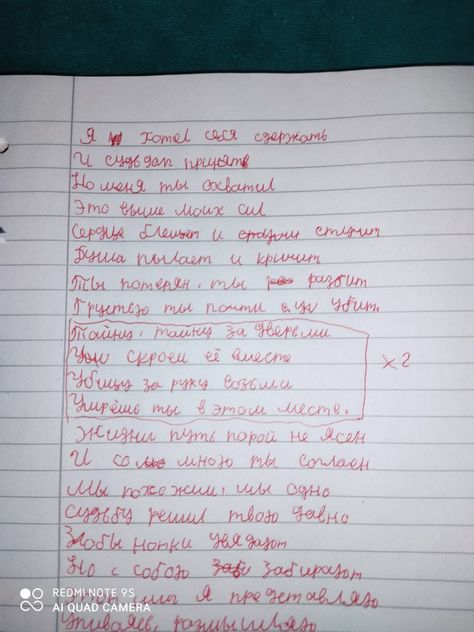 Я хотел себя сдержать
И судьбой принять
Но меня ты схватил
Это выше моих сил
Сердце блещет и стучит
Душа пылает и кричит
Ты потерян, ты разбит
Грустью ты почти убит.
Тайну, тайну за дверьми
скроем её вместе
Убийцу за руку возьми
Умрёшь ты в этом месте.
x2
Жизни путь порой не ясен
И со мною ты согласен
Мы похожи, мы одно
Судьбу решил твою давно
Злобы нотки увядают
Но с собою забирают
я представляю
размышляю
REDMI NOTE 9S
AI QUAD CAMERA